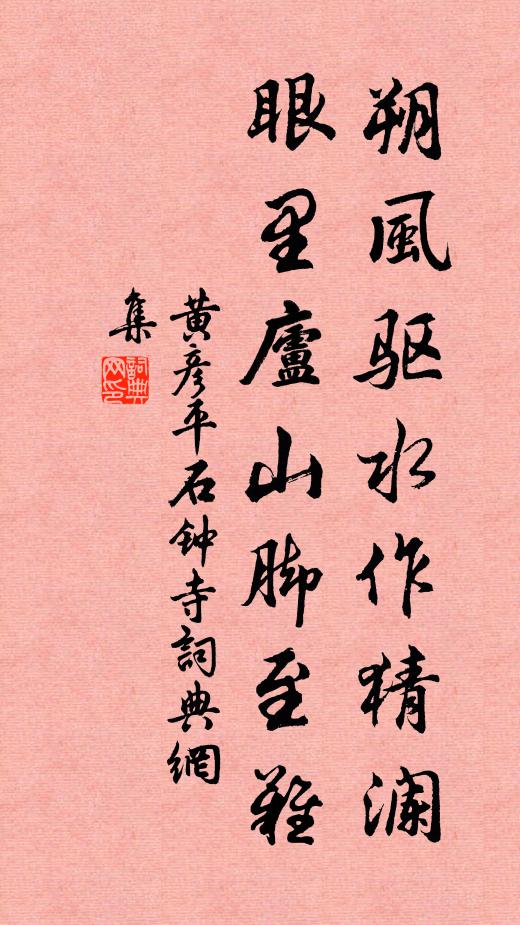 朔風驱水作猜澜
眼里廬山脚至難
黄彦平石钟寺詞典網
集
詞典网印